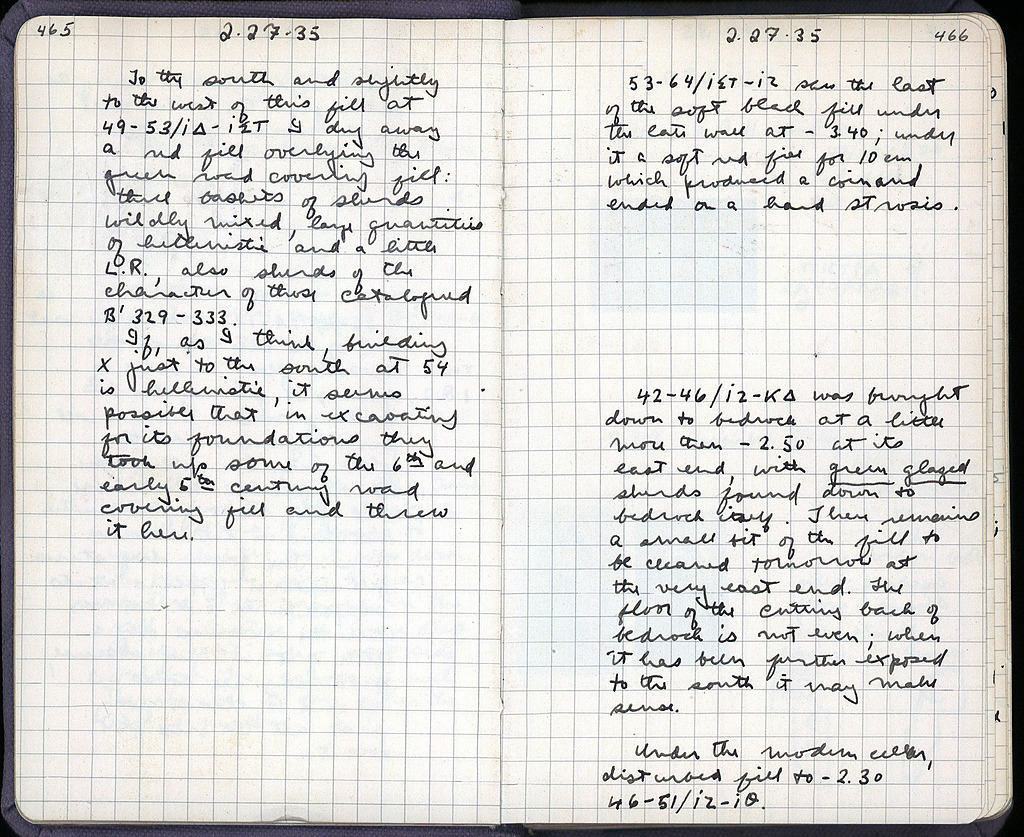 465
2.27.35
To the south and slightly
to the west of this fill at
49-53/ιΔ-ιΣΤ I dug away
a red fill overlying the
green road covering fill:
three baskets of sherds
wildly mixed, large quantities
of hellenistic and a little
L.R., also sherds of the
character of those catalogued
B' 329-333.
If, as I think, building
X just to the south at 54
is hellenistic, it seems
possible that, in excavating
for its foundations they
took up some of the 6th and
early 5th century road
covering fill and threw
it here.
2.27.35
466
53-64/ιΣΤ-ιΖ saw the last
of the soft black fill under
the late wall at - 3.40; under
it a soft red fill for 10 cm,
which produced a coin and
ended on a hard strosis.
42-46/ιΖ-ΚΔ was brought
down to bedrock at a little
more than -2.50 at its
east end, with green glazed
sherds found down to
bedrock itself. There remains
a small bit of the fill to
be cleaned tomorrow at
the very east end. The
floor of the cutting back of
bedrock is not even; when
it has been further exposed
to the south it may make
sense.
Under the modern cellar,
disturbed fill to -2.30
46-51/ιΖ-ιΘ.